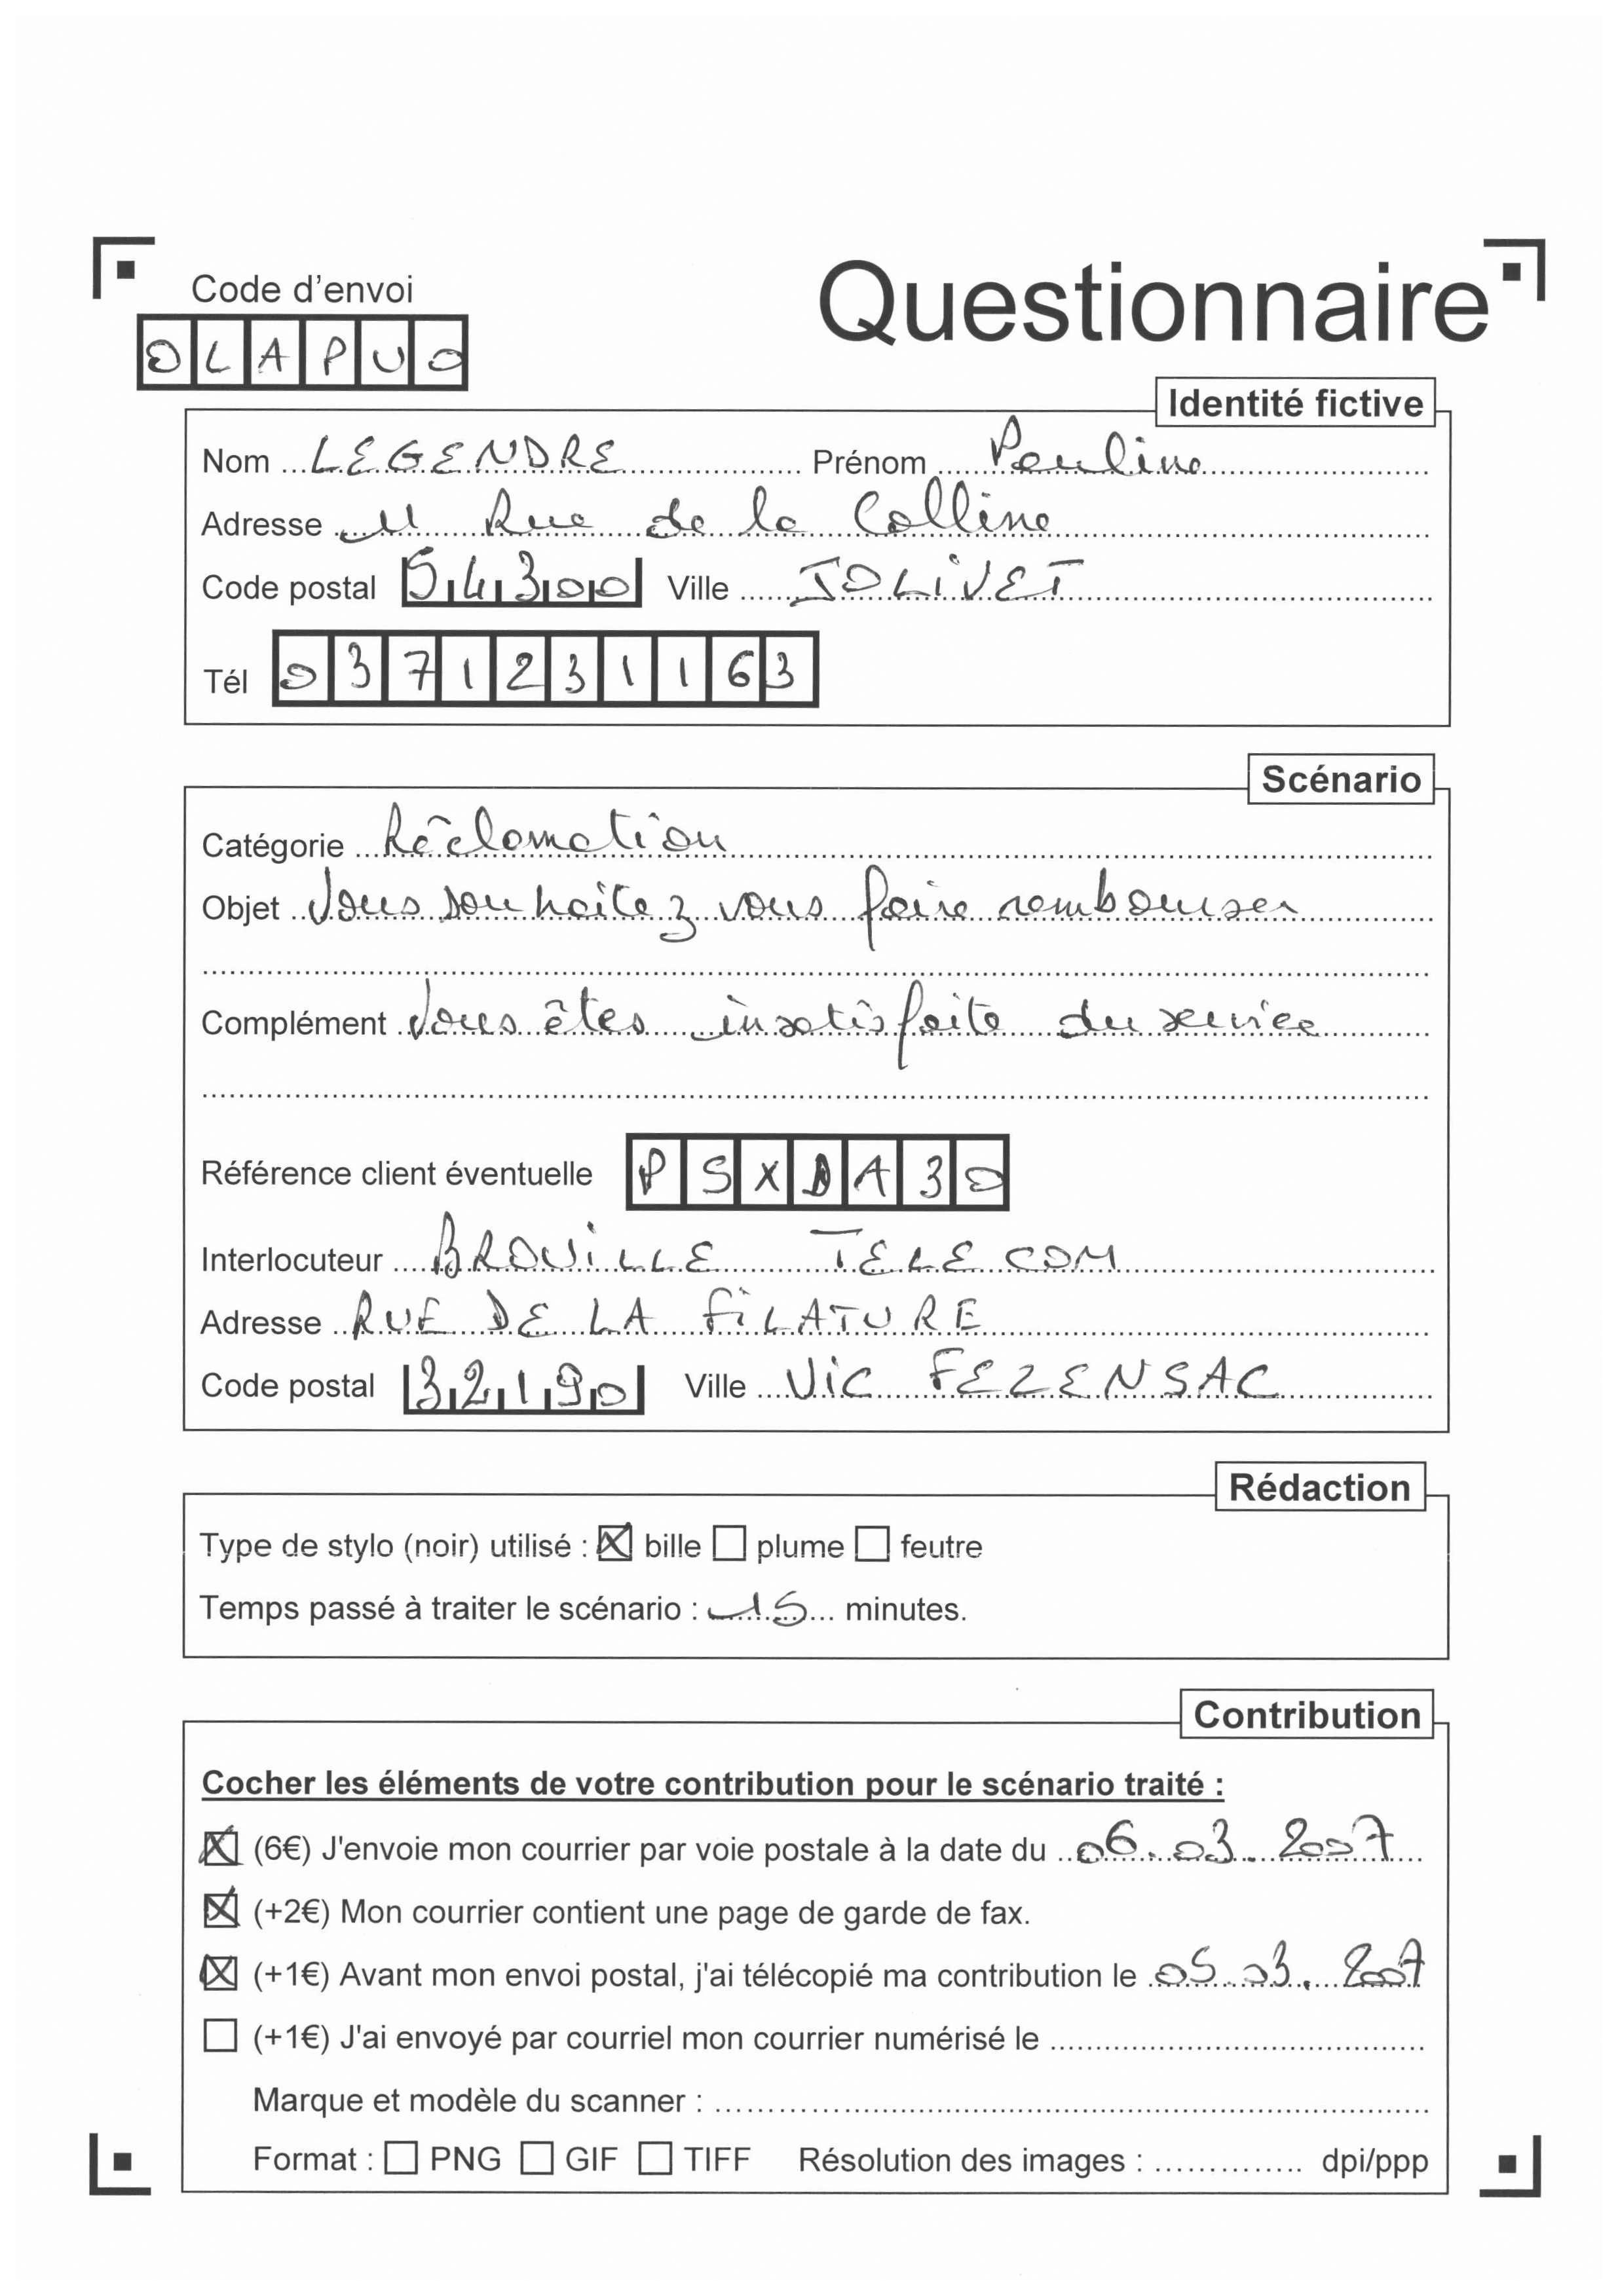 Questionnaire
Code d'envoi
OLAPUO
Identité fictive
Nom LEGENDRE Prénom Pauline
Adresse 11 Rue de la Colline
Code postal 54300 Ville JOLIVET
Tél 0371231163
Scénario
Catégorie Réclamation
Objet Vous souhaitez vous faire rembourser
Complément Vous êtes insatisfaite du service
Référence client éventuelle PSXDA30
Interlocuteur BROVILLE TELECOM
Adresse RUE DE LA FiLATURE
Code postal 32190 Ville ViC FEZENSAC
Rédaction
Type de stylo (noir) utilisé : bille plume feutre
Temps passé à traiter le scénario : 15 minutes.
Contribution
Cocher les éléments de votre contribution pour le scénario traité :
(6€) J'envoie mon courrier par voie postale à la date du 06.03.2007
(+2€) Mon courrier contient une page de garde de fax.
(+1€) Avant mon envoi postal, j'ai télécopié ma contribution le 05.03.2007
(+1€) J'ai envoyé par courriel mon courrier numérisé le
Marque et modèle du scanner :
Format : PNG GIF TIFF Résolution des images : dpi/ppp